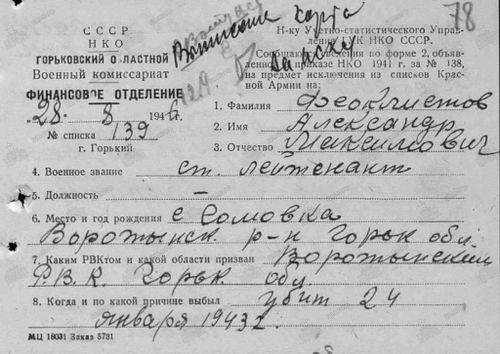 78
Выписана карта
СССР
НКО
ГОРЬКОВСКИЙ ОБЛАСТНОЙ
Военный комиссариат
ФИНАНСОВОЕ ОТДЕЛЕНИЕ
"28" 8 1946 г.
№ списка 139
г. Горький
Н-ку Учетно-статистического Управления ГУК НКО СССР.
Сообщаю сведения по форме 2, объявленной приказе НКО 1941 г. за № 138,
на предмет исключения из списков Красной Армии на:
1. Фамилия Феоктистов
2. Имя Александр
3. Отчество Максимович
4. Военное звание ст. лейтенант
5. Должность –
6. Место и год рождения с Сомовка
Воротынск. р-н Горьк обл.
7. Каким РВКтом и какой области призван Воротынским
Р.В.К. Горьк. обл.
8. Когда и по какой причине выбыл убит 24
января 1943 г.
МЦ 18031 Заказ 5731